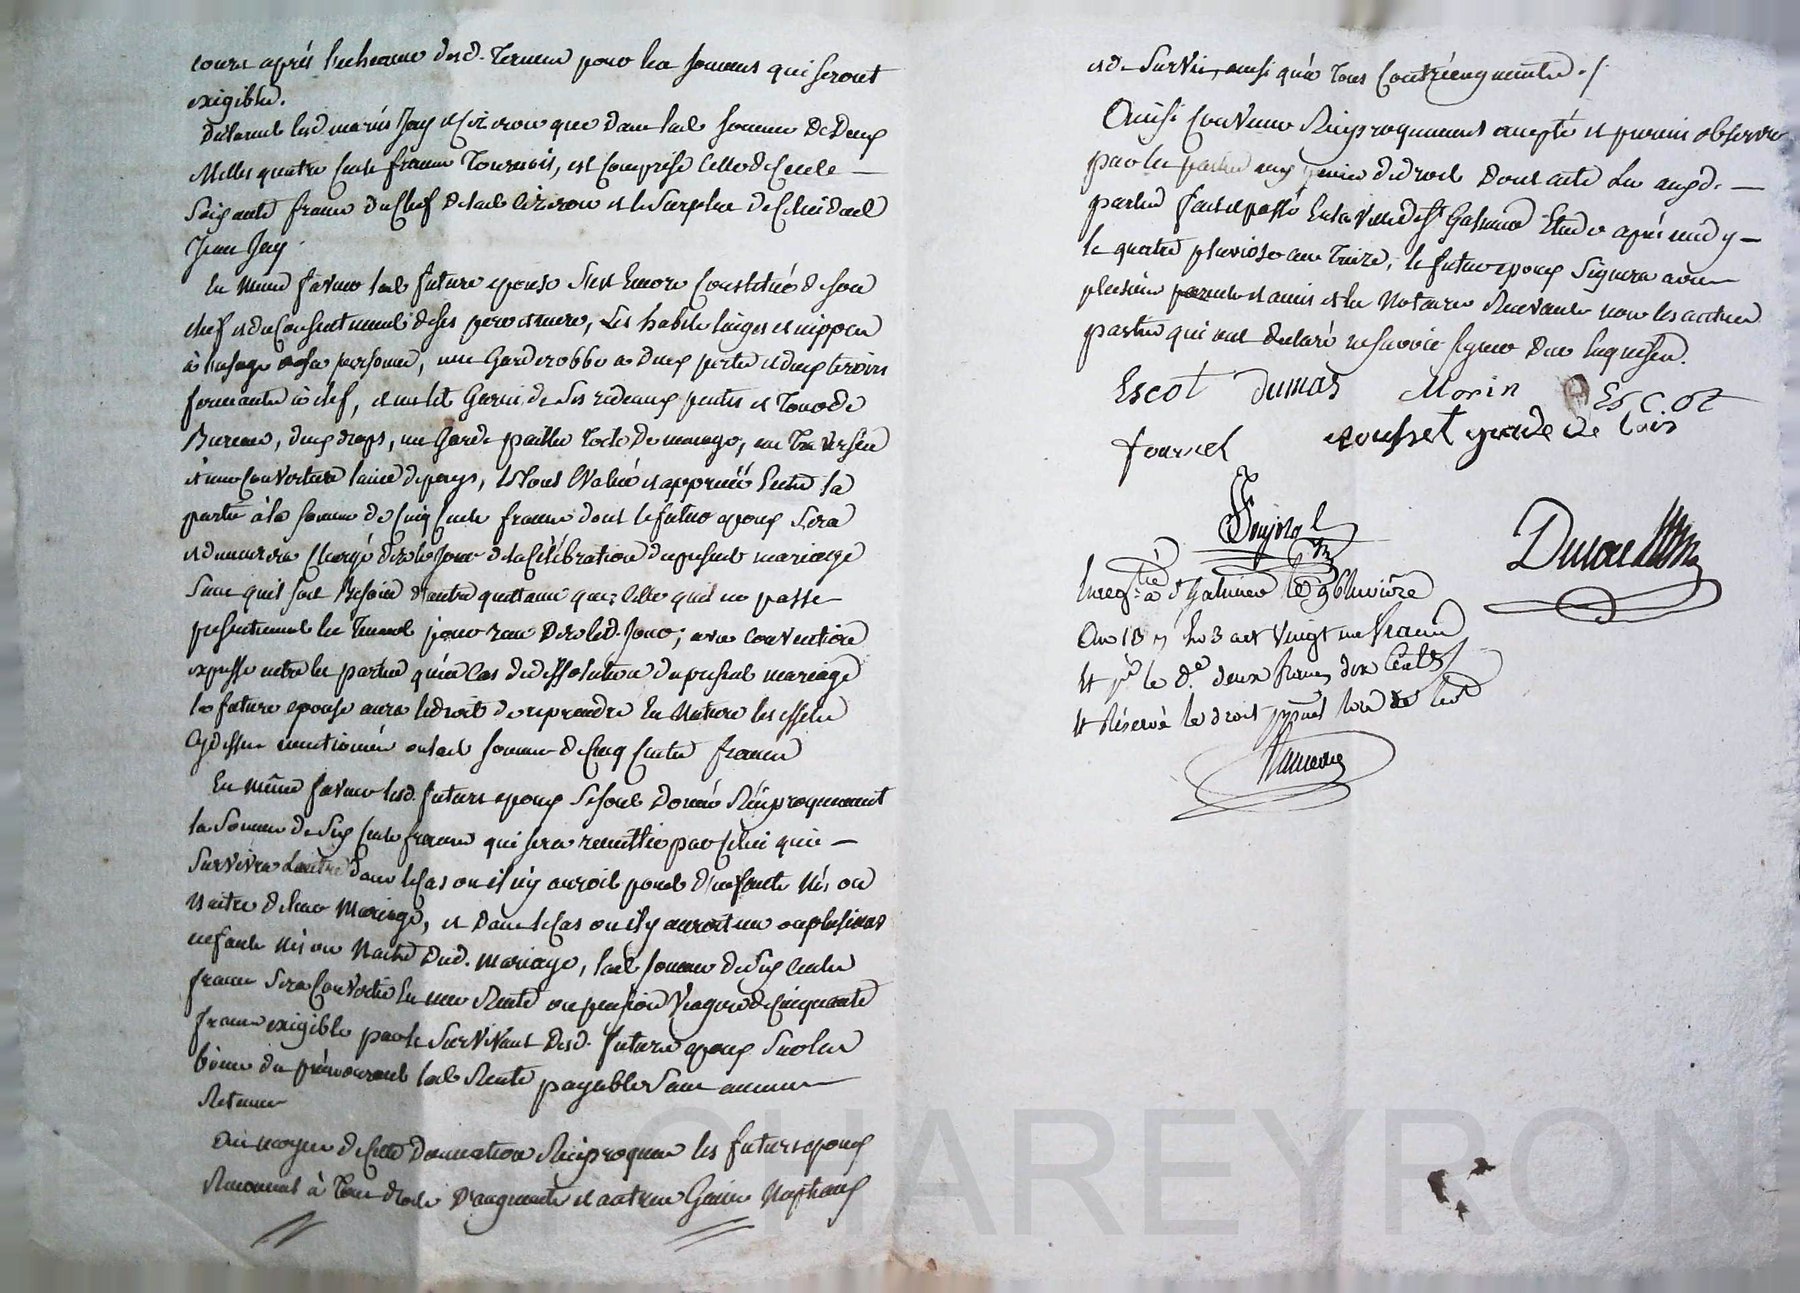 cours après l'echeance desd. Termes pour les sommes qui seront
exigibles.
Declarent lesd mariés Jay et que dans lad somme De Deux
Milles quatre Cents francs Tournois, est Comprise Celle de Cent
Soixante francs du Chef de lad et le Surplus de Celui dud
Jean Jay.
En Meme faveur lad future epouse s'est Encore Constitué de son
chef et du Consentement de ses pere et mere, Les habits linges et nippes
à l'usage de sa personne, une Garderobbe a deux portes et deux tiroirs
fermante à clef, et un lit Garni de Ses rideaux pentes et Tour de
Bureau, deux draps, un Garde paille Toile De menage, un Traversin
et une Couverture laine de pays, le Tout Evalué et apprecié Entre les
parties à la somme de Cinq Cents francs dont le futur epoux Sera
et demeurera Chargé dès le Jour de la Célébration du present mariage
Sans qu'il soit Besoin d'autre quittance que Celle qu'il en passe
presentement les Tenant pour reçu Dès led. Jour; avec Convention
expresse entre les parties qu'en Cas de dissolution du present mariage
la future epouse aura le droit de reprendre En Nature les effets
Cydessus mentionnés ou lad somme de Cinq Cents francs
En Même faveur lesd. futurs epoux Se sont Donnés Réciproquement
la Somme de Six Cents francs qui sera recuillie par Celui qui
Survivra L'autre Dans le Cas ou il n'y auroit point d'enfants Nés ou
Naitre de leur Mariage, et Dans le Cas ou il y auroit un ou plusieurs
enfants Nés ou Naitre Dud. Mariage, lad somme de Six Cents
francs Sera Convertie En une Rente ou pension Viagere de Cinquante
francs exigible par le Survivant Desd. futurs epoux Sur les
biens du prémourant lad Rente payable Sans aucune
Retenue
Au moyen de Cette Donnation Réciproque les futurs epoux
Renoncent à Tous droits D'augments et autres Gains Nuptiaux
et de Survie, ainsi qu'a Tous Contréaugments ./
Ainsi Convenu Réciproquement accepté et promis observer
par les parties aux peines de droit Dont acte Les auxd.
parties fait et passé En la Ville de St Galmier Etude après midy
le quatre pluviose an Treize, le futur epoux Signera avec
plusieurs parents et amis et les Notaires Recevants non les autres
parties qui ont declaré ne savoir signer Due Enquises.
Escot Dumas Morin Escot
fournel rousset garde de bois
Enregtré à St Galmier le 9 Pluviose
An 13
le d.e deux francs dix Cents
Et Réservé le droit
CHAREYRON